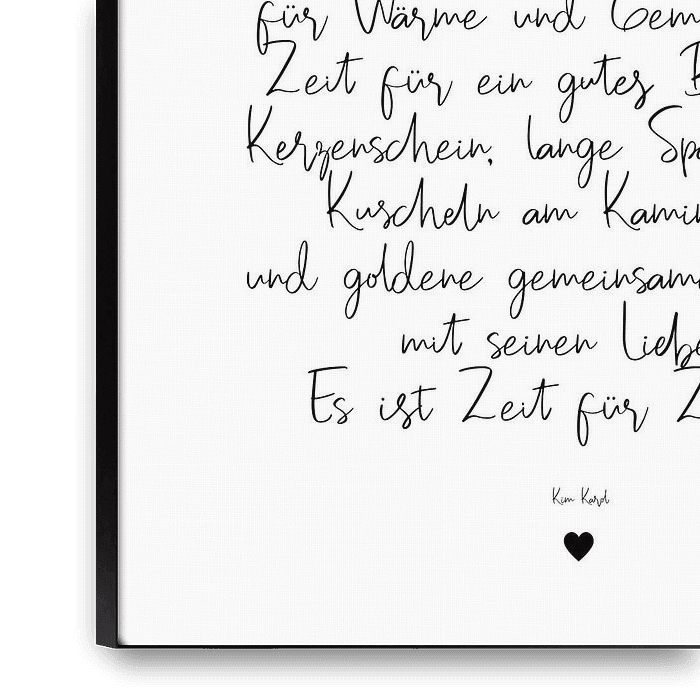 für Wärme und Gem
Zeit für ein gutes B
Kerzenschein, lange Spa
Kuscheln am Kamin
und goldene gemeinsame
mit seinen Liebe
Es ist Zeit für Z
Kim Karol